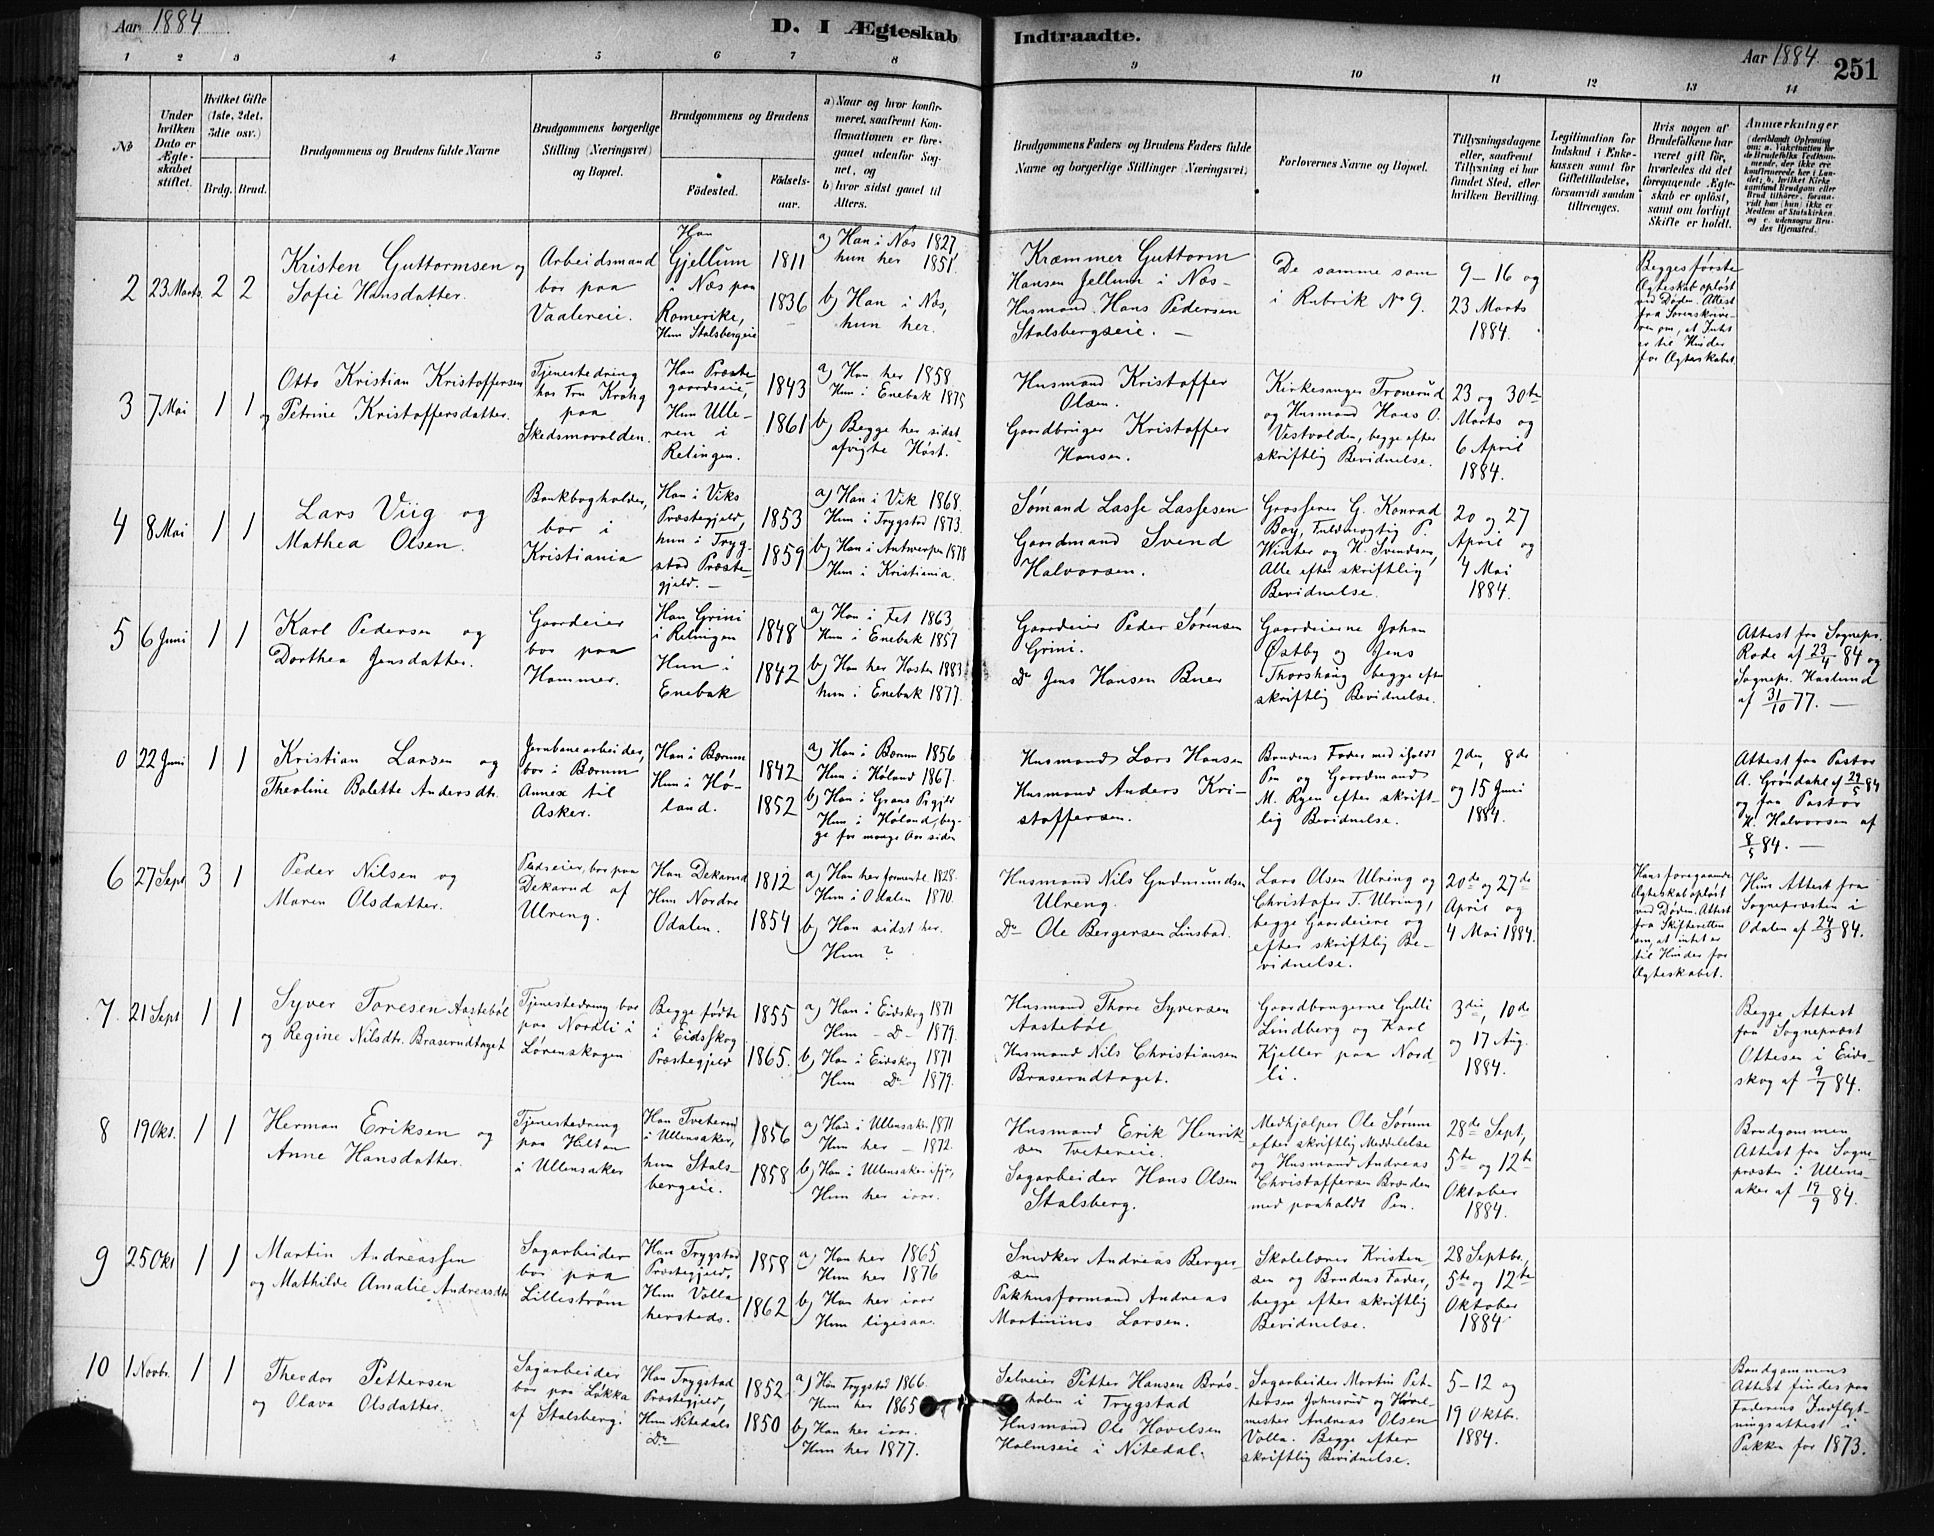 Aar 1884
D. I Ægteskab
Indtraadte.
Aar 1884
251
1 2 3 4 5 6 7 8
9 10 11 12 13 14
No
Under hvilken Dato er Ægteskabet stiftet.
Hvilket Gifte (1ste, 2det, 3die osv.)
Brdg. Brud.
Brudgommens og Brudens fulde Navne
Brudgommens borgerlige Stilling (Næringsvei) og Bopæl.
Brudgommens og Brudens
Fødested.
Fødselsaar.
a) Naar og hvor konfirmeret, saafremt Konfirmationen er foregaaet udenfor Sognet, og
b) hvor sidst gaaet til Alters.
Brudgommens Faders og Brudens Faders fulde Navne og borgerlige Stillinger (Næringsvei)
Forlovernes Navne og Bopæl.
Tillysningsdagene eller, saafremt Tillysning ei har fundet Sted, efter hvilken Bevilling.
Legitimation for Indskud i Enkekassen samt for Giftetilladelse, forsaavidt saadan tiltrænges.
Hvis nogen af Brudefolkene har været gift før, hvorledes da det foregaaende Ægteskab er opløst, samt om lovligt Skifte er holdt.
Anmærkninger
2
23 Marts
2
2
Kristen Guttormsen og
Sofie Hansdatter.
Arbeidsmand
bor paa
Vaalereie.
Han
Gjellum
i Næs paa
Romerike,
Hun Stalsbergeie
1811
1836
a) Han i Næs 1827.
hun her 1851.
b) Han i Næs,
hun her.
Kræmmer Guttorm
Hansen Jellum i Næs -
Husmand Hans Pedersen
Stalsbergseie. -
De samme som
i Rubrik No 9.
9 - 16 og
23 Marts
1884.
Begges første
Ægteskab opløst
ved Døden. Attest
fra Sorenskrive-
ren om, at Intet
er til Hinder
for Ægteskabet
3
7 Mai
1
1
Otto Kristian Kristoffersen
og Petrine Kristoffersdatter.
Tjenestedreng
hos Fru Krohg
paa
Skedsmovolden.
Han Præste-
gaardseie,
Hun Ulle-
ren i
Relingen.
1843
1861
a) Han her 1858.
Hun i Enebak 1875
b) Begge her sidst
afvigte Høst.
Husmand Kristoffer
Olsen.
Gaardbruger Kristoffer
Hansen.
Kirkesanger Tronerud
og Husmand Hans O.
Vestvolden, begge efter
skriftlig Bevidnelse.
23 og 30te
Marts og
6 April
1884.
4
8 Mai
1
1
Lars Viig og
Mathea Olsen.
Bankbogholder,
bor i
Kristiania
Han i Viks
Præstegjeld,
hun i Tryg-
stad Præste-
gjeld. -
1853
1859
a) Han i Vik 1868.
Hun i Trygstad 1873.
b) Han i Antwerpen 1878
Hun i Kristiania.
Sømand Lasse Lassesen
Gaardmand Svend
Halvorsen.
Grosserer G. Konrad
Boy, Fuldmægtig P.
Winter og H. Svendsen,
Alle efter skriftlig
Bevidnelse.
20 og 27
April og
4 Mai
1884.
5
6 Juni
1
1
Karl Pedersen og
Dorthea Jensdatter.
Gaardeier
bor paa
Hammer.
Han Grini
i Relingen
Hun i
Enebak
1848
1842
a) Han i Fet 1863,
Hun i Enebak 1857
b) Han her Høsten 1883
hun i Enebak 1877.
Gaardeier Peder Sørensen
Grini.
Do Jens Hansen Buer
Gaardeierne Johan
Østby og Jens
Thorshaug begge efter
skriftlig Bevidnelse.
Attest fra Sognepr.
Rode af 23/4 84 og
Sognepr. Haslund
af 31/10 77. -
0
22 Juni
1
1
Kristian Larsen og
Theoline Bolette Andersdtr.
Jernbanearbeider,
bor i Bærum
Annex til
Asker.
Han i Bærum
Hun i Hø-
land.
1842
1852
a) Han i Bærum 1856
Hun i Høland 1867.
b) Han i Grans Prgjeld
Hun i Høland, beg-
ge for mange Aar siden
Husmand Lars Hansen
Husmand Anders Kri-
stoffersen.
Brudens Fader med iholdt
Pen og Gaardmand
M. Ryen efter skrift-
lig Bevidnelse.
2den, 8de
og 15 Juni
1884.
Attest fra Pastor
A. Grøndahl af 29/5 84
og fra Pastor
H. Halvorsen af
8/5 84. -
6
27 Sept
3
1
Peder Nilsen og
Maren Olsdatter.
Pladseier, bor paa
Dekarud af
Ulreng.
Han Dekarud
Hun Nordre
Odalen.
1812
1854
a) Han her formente 1828.
Hun i Odalen 1870.
b) Han sidst her.
Hun ?
Husmand Nils Gudmundsen
Ulreng.
Do Ole Bergersen Linsbad.
Lars Olsen Ulring og
Christofer T. Ulring,
begge Gaardeiere og
efter skriftlig Be-
vidnelse.
20de og 27de
April og
4 Mai 1884.
Hans foregaaende
Ægteskab opløst
ved Døden. Attest
fra Skifteretten
om, at intet er
til Hinder for
Ægteskabet.
Huns Attest fra
Sognepræsten i
Odalen af 24/3 84.
7.
21 Sept
1
1
Syver Toresen Aastebøl
og Regine Nilsdtr. Braserudtaget
Tjenestedreng bor
paa Nordli i
Lørenskogen
Begge fødte
i Eidsskog
Præstegjeld
1855
1865.
a) Han i Eidskog 1871
Hun - Do 1879.
b) Han i Eidskog 1871
Hun Do 1879.
Husmand Thore Syversen
Aastebøl
Husmand Nils Christiansen
Braserudtaget.
Gaardbrugerne Gulli
Lindberg og Karl
Kjeller paa Nord-
li.
3die, 10de
og 17 Aug.
1884.
Begge Attest
fra Sognepræst
Ottesen i Eids-
skog af 9/7 84.
8
19 Okt.
1
1
Herman Eriksen og
Anne Hansdatter.
Tjenestedreng
paa Hilton
i Ullensaker
Han Tveterud
i Ullensaker,
hun Stals-
bergeie.
1856
1858
a) Han i Ullensaker 1871
Hun her - 1872.
b) Han i Ullensaker ifjor,
Hun her iaar.
Husmand Erik Henrik
sen Tvetereie.
Sagarbeider Hans Olsen
Stalsberg.
Medhjælper Ole Sørum
efter skriftlig Meddelelse
og Husmand Andreas
Christoffersen Brænden
med paaholdt Pen.
28de Sept,
5te og 12te
Oktober
1884.
Brudgommen
Attest fra Sogne-
præsten i Ullens-
aker af 19/9 84.
9
25 Okt
1
1
Martin Andreassen
og Mathilde Amalie Andreasdtr
Sagarbeider
bor paa
Lillestrøm
Han Trygstad
Præstegjeld,
Hun Volla
hersteds.
1858
1862
a) Han her 1865
Hun her 1876
b) Han her iaar
Hun ligesaa.
Snedker Andreas Berger-
sen
Pakhusformand Andreas
Martinius Larsen.
Skolelærer Kristen-
sen og Brudens Fader,
begge efter skriftlig
Bevidnelse.
28 Septbr,
5te og 12te
Oktober
1884
10
1 Novbr.
1
1
Theodor Pettersen
og Olava Olsdatter.
Sagarbeider
bor paa Løkka
af Stalsberg.
Han Trygstad
Præstegjeld,
Hun Nitedals
Do
1852
1850
a) Han Trygstad 1866.
Hun her 1865
b) Han her iaar.
Hun her 1877.
Selveier Petter Hansen Brøs-
holen i Trygstad
Husmand Ole Hovelsen
Holmseie i Nitedal.
Sagarbeider Martin Pet-
tersen Johnsrud og Høvel-
mester Andreas Olsen
Volla. Begge efter
skriftlig Bevidnelse.
5-12 og
19 Oktbr.
1884.
Brudgommens
Attest findes paa
Faderens Indflyt-
ningsattest i
Pakken for 1873.